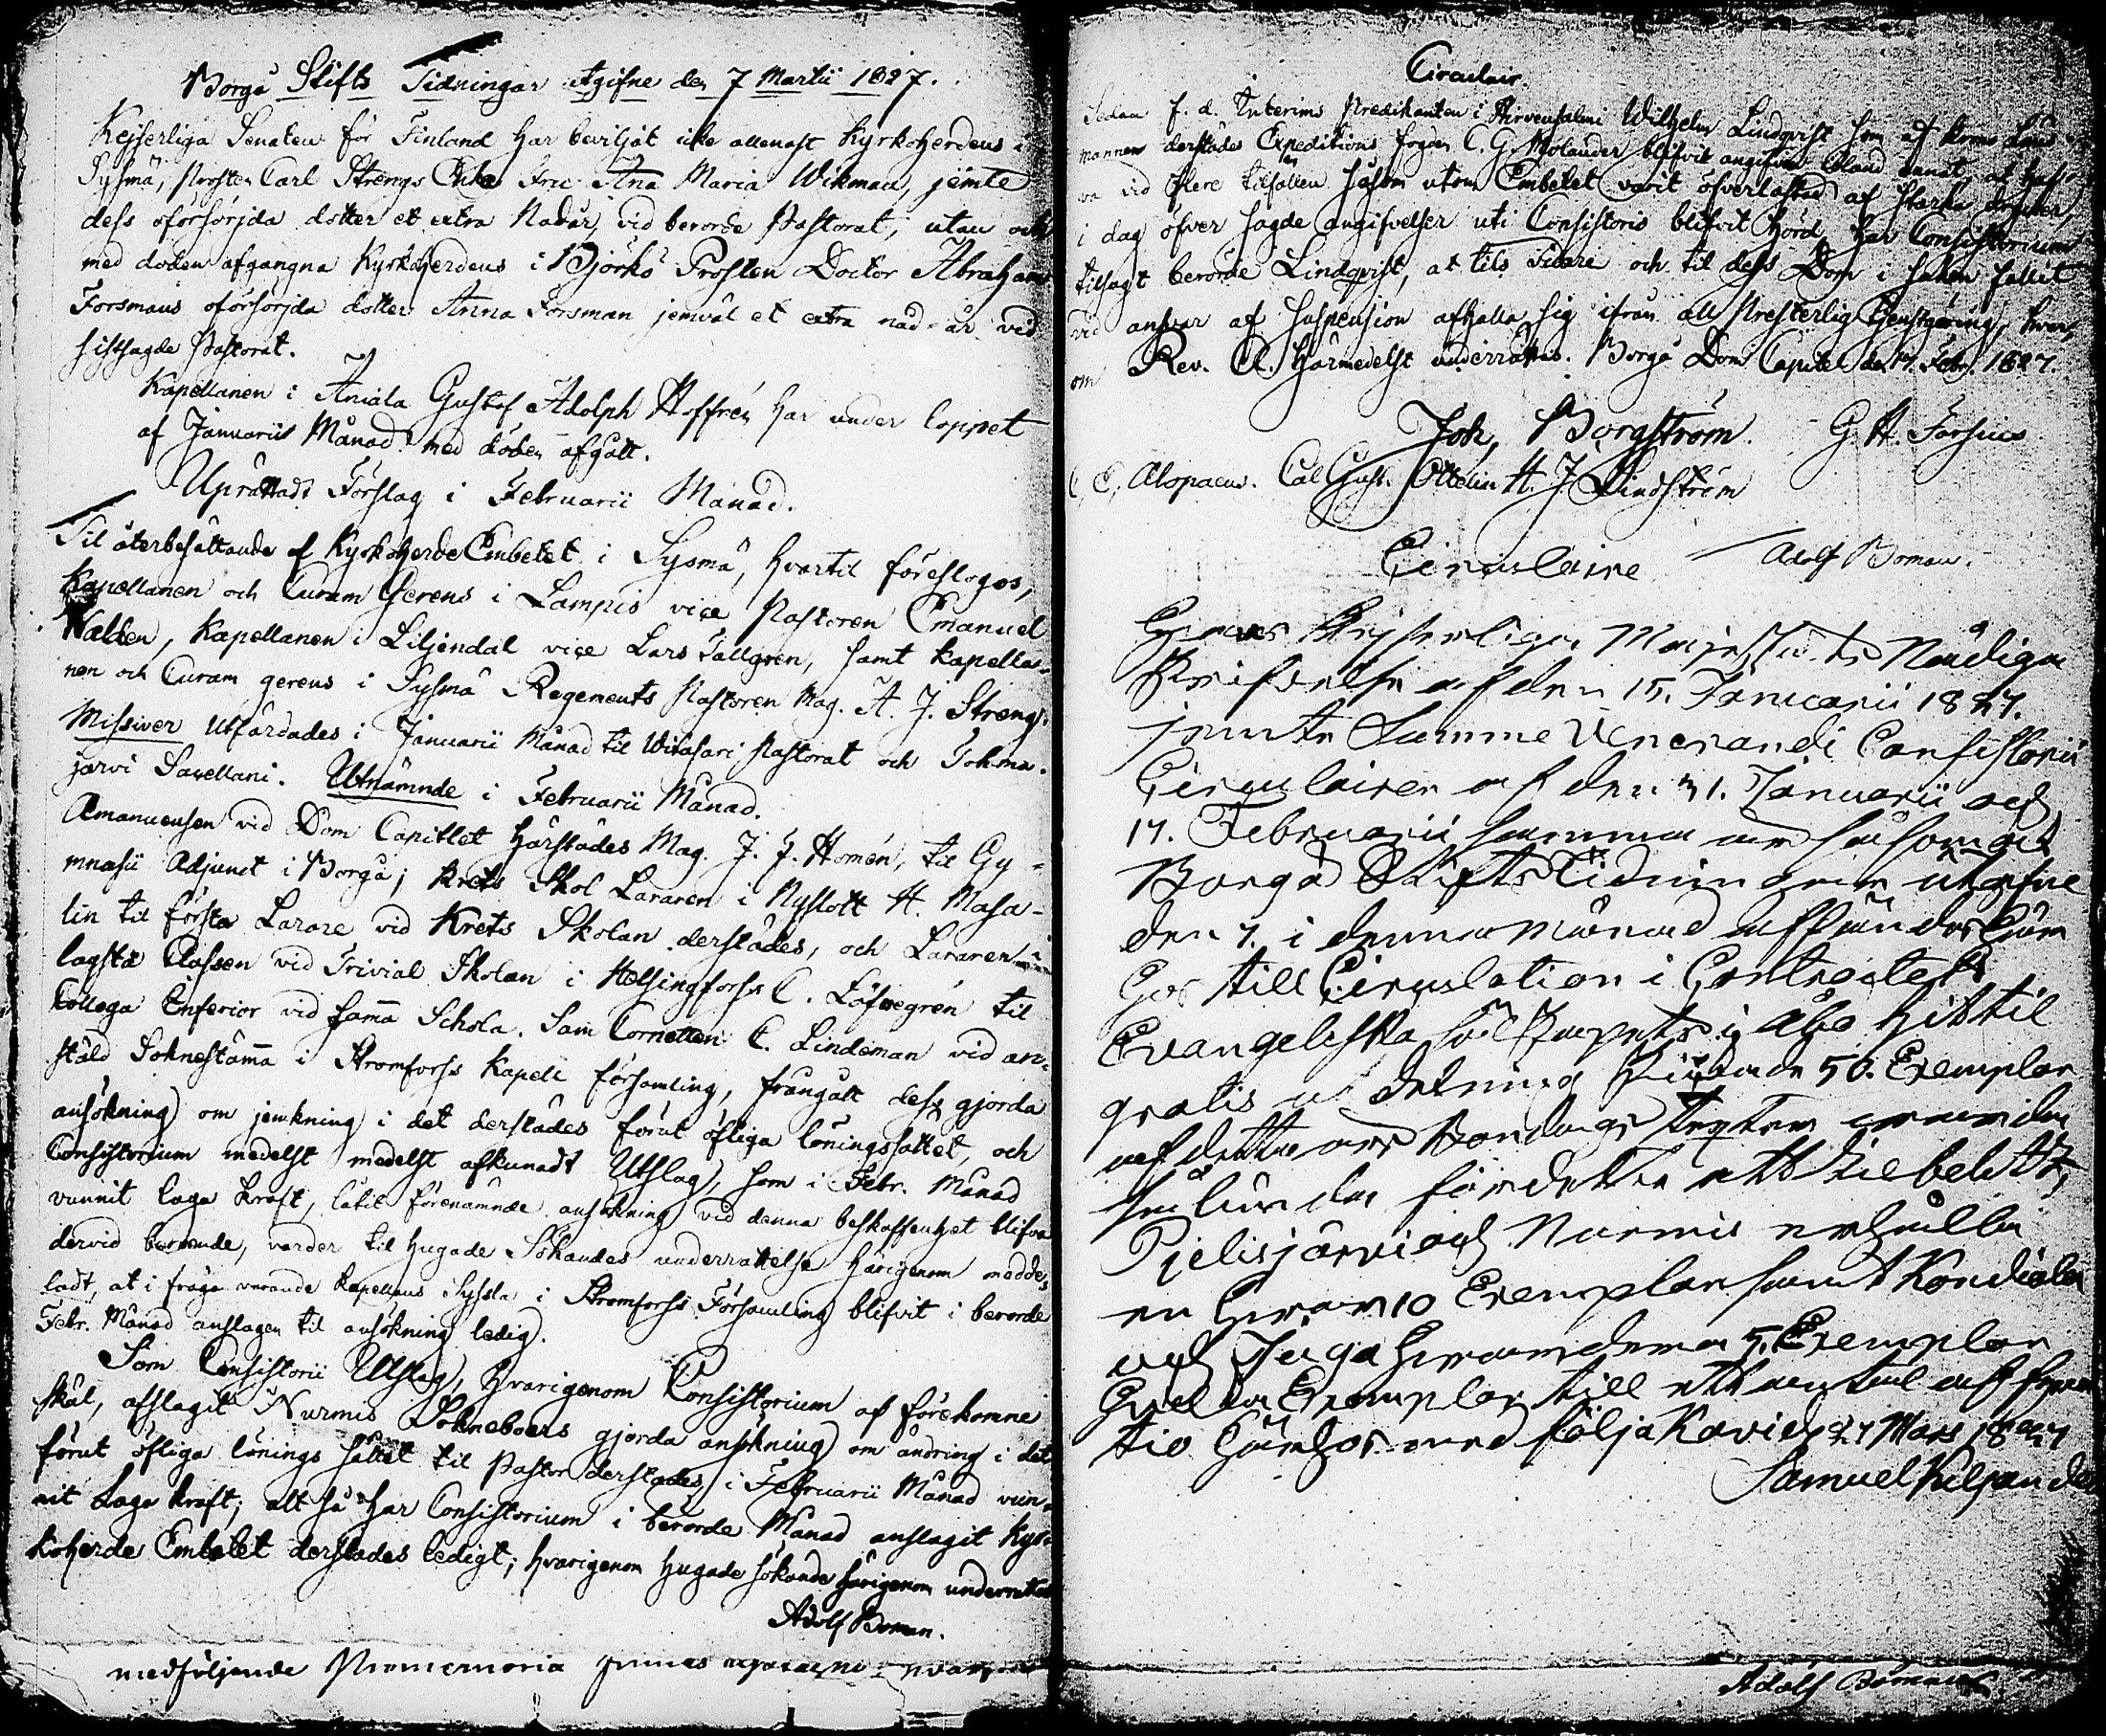 Borgå Stifts Tidningar utgifne den 7 Martii 1827.
Kejserliga Senaten för Finland har beviljat icke allenast Kyrkoherdens i
Sysmä, Prosten Carl Strengs Enka Fru Anna Maria Wikman, jemte
dess oförsörjda dotter et extra Nadår, vid berörde Pastorat, utan ock
med döden afgangna Kyrkoherdens i Björkö Prosten Doctor Abraham
Forsmans oförsörjda dotter Anna Forsman jemväl et extra nad-år vid
sistsagde Pastorat.
Kapellanen i Aniala Gustaf Adolph Hoffrén har under loppet
af Januarii Månad med döden afgått.
Uprättadt Förslag i Februarii Månad.
Til återbesättande af KyrkoherdeEmbetet i Sysmä, hvartil föreslogos,
Kapellanen och Curam Gerens i Lampis vice Pastoren Emanuel
Walden, Kapellanen i Liljendal vice Lars Tallgren, samt Kapella-
nen och Curam gerens i Sysmä Regements Pastoren Mag. A. J. Streng.
Missiver utfärdades i Januarii Månad til Witasari Pastorat och Tohma-
järvi Sacellani. Utnämnde i Februarii Månad.
Amanuensen vid Dom Capitlet härstädes Mag. J. J. Homén, til Gy-
mnasii Adjunct i Borgå; Krets Skol Läraren i Nyslott H. Masa-
lin til förste Lärare vid Krets Skolan derstädes, och Läraren i
lägsta Classen vid Trivial Skolan i Helsingfors C. Löfwegrén til
Collega Inferior vid samma Schola. Som Cornetten C. Lindeman vid an-
stäld Soknestämma i Strömfors Kapell församling, frångått dess gjorda
ansökning om jemkning i det derstädes förut öfliga löningssättet, och
Consistorium medelst medelst afkunnadt Utslag, som i Febr. Månad
vunnit laga kraft, låtit förenämnde ansökning vid denna beskaffenhet blifva
dervid beroende, varder til hugade Sökandes underrättelse härigenom medde-
ladt, at i fråga varande Kapellans Syssla i Strömfors Församling blifvit i berörde
Febr. Månad anslagen til ansökning ledig.
Som Consistorii Utslag, hvarigenom Consistorium af förekomne
skäl, afslagit Nurmis Sokneboers gjorda ansökning om ändring i det
förut öfliga lönings sättet til Pastor derstädes, i Februarii Månad vun-
nit Laga kraft; altså har Consistorium i berörde Månad anslagit Kyr-
koherde Embetet derstädes ledigt; hvarigenom hugade sökande härigenom underrättas
Adolf Boman.
medföljende Promemoria finnes
Circulair.
Sedan f. d. Interims Predikanten i Hirvensalmi Wilhelm Lindqvist som af Krono Läns-
mannen derstädes Expeditions fogden C. G. Molander blifvit angifven bland annat, at haf-
va vid flere tilfällen såsom utom Embetet varit öfverlastad af starka drycker,
i dag öfver sagde angifvelser uti Consistorio blifvit hörd, har Consistorium
tilsagt berörde Lindqvist, at tils vidare och til dess Dom i saken fallit
vid ansvar af suspension afhålla sig ifrån all Presterlig tjenstgöring, hvar-
om Rev. Cl. härmedelst underrättas. Borgå Dom Capitel den 14 Febr. 1827.
Joh. Borgström. G. H. Forsius
C. E. Alopaeus. Carl Gust. Ottelin H. J. Lindström
Adolf Boman.
Circulaire
Hans Kejserliga Majestäts Nådiga
Skrifvelse af den 15. Januarii 1827.
jemte Summe Venerandi Consistorii
Circulairer af den 31. Januarii och
14. Februarii samma år såsom ock
Borgå Stifts Tidningar utgifne
den 7. i denna Månad afsändes här
hos till Circulation i Contractet.
Evangeliska Sällskapets i Åbo hittil
gratis utdelning skickade 50. Exemplar
af detta års Böndags Texter
sålunda fördelta att Liebelitz,
Pielisjärvi och Nurmis erhålla
en hvar 10 Exemplar samt Kondiala
och Juga hvardera 5. Exemplar
hvilka Exemplar till ett antal af fyra
tio härhos medfölja Kavis d. 27 Mars 1827
Samuel Kiljander
Adolf Boman.